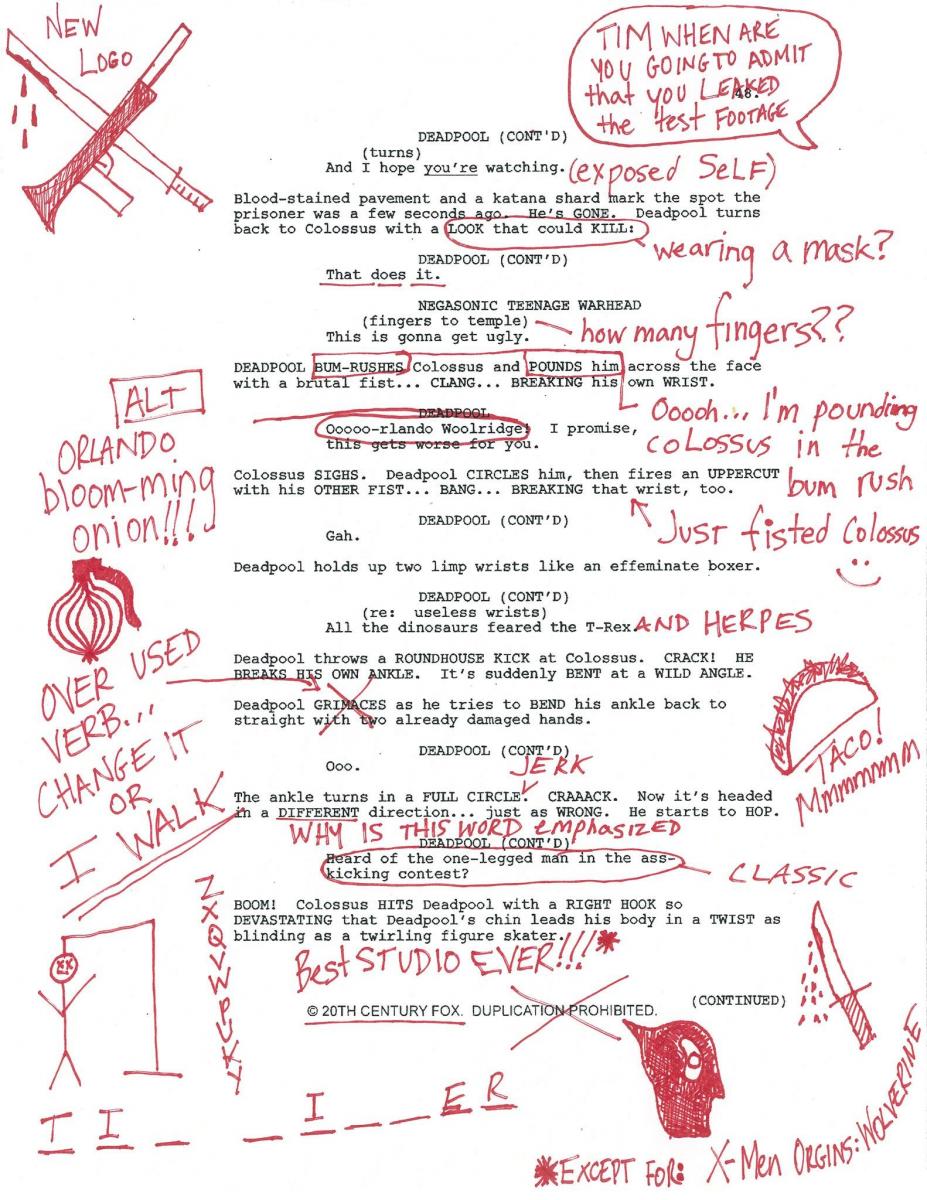 NEW
LOGO
TIM WHEN ARE
YOU GOING TO ADMIT
that you LEAKED
the test FOOTAGE
48.
DEADPOOL (CONT'D)
(turns)
And I hope you're watching. (exposed SeLF)
Blood-stained pavement and a katana shard mark the spot the
prisoner was a few seconds ago. He's GONE. Deadpool turns
back to Colossus with a LOOK that could KILL:
wearing a mask?
DEADPOOL (CONT'D)
That does it.
NEGASONIC TEENAGE WARHEAD
(fingers to temple)
This is gonna get ugly.
how many fingers??
DEADPOOL BUM-RUSHES Colossus and POUNDS him across the face
with a brutal fist... CLANG... BREAKING his own WRIST.
Ooooh... I'm pounding
COLOSSUS in the
bum rush
ALT
ORLANDO
bloom-ming
onion!!!
DEADPOOL
Ooooo-rlando Woolridge! I promise,
this gets worse for you.
Colossus SIGHS. Deadpool CIRCLES him, then fires an UPPERCUT
with his OTHER FIST... BANG... BREAKING that wrist, too.
Just fisted Colossus
DEADPOOL (CONT'D)
Gah.
Deadpool holds up two limp wrists like an effeminate boxer.
DEADPOOL (CONT'D)
(re: useless wrists)
All the dinosaurs feared the T-Rex. AND HERPES
OVER USED
VERB...
CHANGE IT
OR
I WALK
Deadpool throws a ROUNDHOUSE KICK at Colossus. CRACK! HE
BREAKS HIS OWN ANKLE. It's suddenly BENT at a WILD ANGLE.
Deadpool GRIMACES as he tries to BEND his ankle back to
straight with two already damaged hands.
TACO!
Mmmmmmm
DEADPOOL (CONT'D)
Ooo.
JERK
The ankle turns in a FULL CIRCLE. CRAAACK. Now it's headed
in a DIFFERENT direction... just as WRONG. He starts to HOP.
WHY IS THIS WORD emphasized
DEADPOOL (CONT'D)
Heard of the one-legged man in the ass-
kicking contest?
CLASSIC
BOOM! Colossus HITS Deadpool with a RIGHT HOOK so
DEVASTATING that Deadpool's chin leads his body in a TWIST as
blinding as a twirling figure skater.
Best STUDIO EVER!!!*
(CONTINUED)
© 20TH CENTURY FOX. DUPLICATION PROHIBITED.
T I _ _ I _ _ E R
*EXCEPT FOR: X-Men ORGINS: WOLVERINE